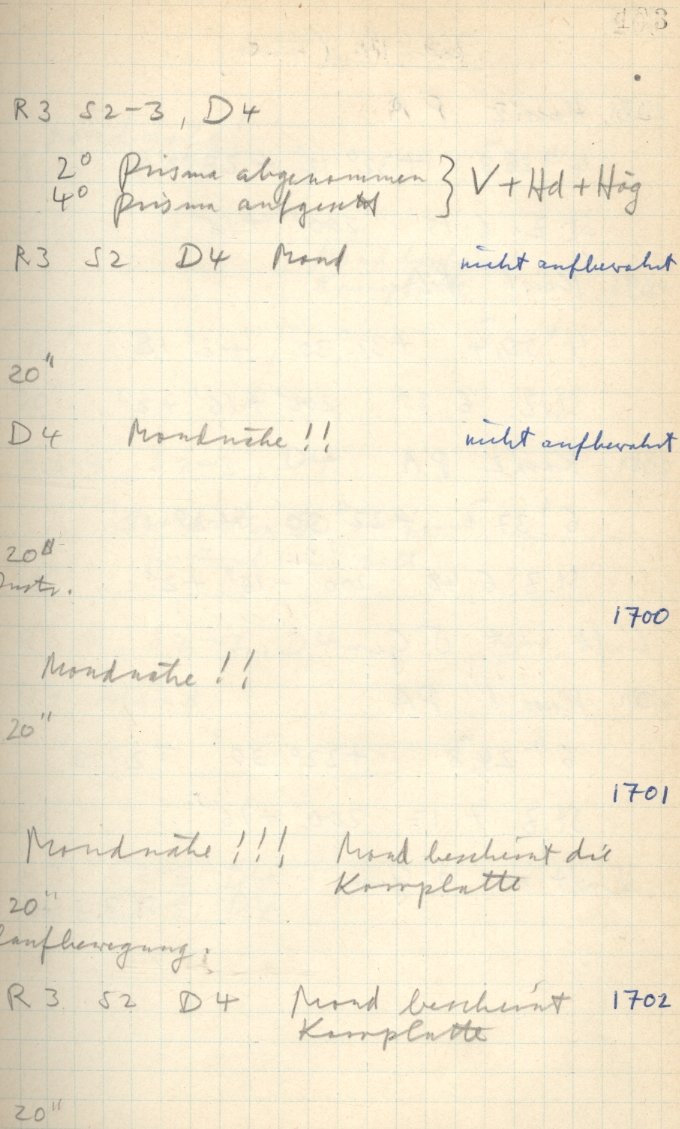 R3 S2-3, D4
2° Prisma abgenommen } V + Hd + Hög
4° Prisma aufgesetzt
R3 S2 D4 Mond nicht aufbewahrt
20"
D4 Mondnähe!! nicht aufbewahrt
20"
Instr.
1700
Mondnähe!!
20"
1701
Mondnähe!!! Mond bescheint die
Korrplatte
20"
laufbewegung.
R3 S2 D4 Mond bescheint 1702
Korrplatte
20"